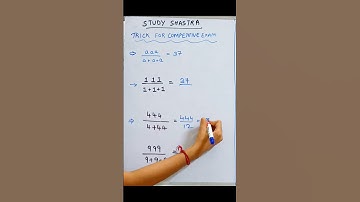 STUDY SHASTRA
TRICK FOR COMPETITIVE EXAM
⇒ aaa / a+a+a = 37
→ 111 / 1+1+1 = 37
⇒ 444 / 4+44 = 444 / 12 =
999 / 9+9+ =